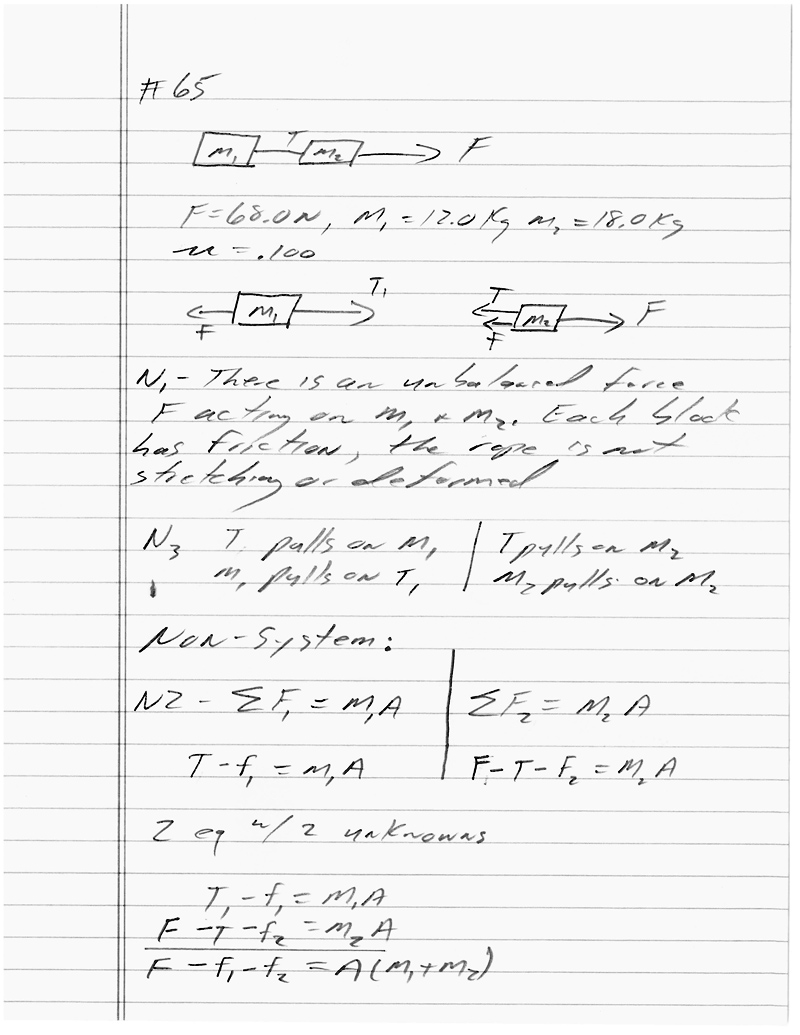 #65
m₁ T m₂ F
F=68.0N, M₁=12.0Kg m₂=18.0Kg
μ=.100
F m₁ T₁ T F m₂ F
N₁- There is an unbalanced force
F acting on m₁ + m₂. Each block
has friction, the rope is not
stretching or deformed
N₃ T pulls on m₁ | T pulls on m₂
m₁ pulls on T₁ | M₂ pulls on M₂
Non-System:
N2 - ΣF₁ = m₁A | ΣF₂ = M₂ A
T-f₁ = m₁A | F-T-F₂ = M₂A
2 eq w/ 2 unknowns
T₁-f₁ = m₁A
F-T-f₂ = m₂A
F-f₁-f₂ = A(M₁+M₂)